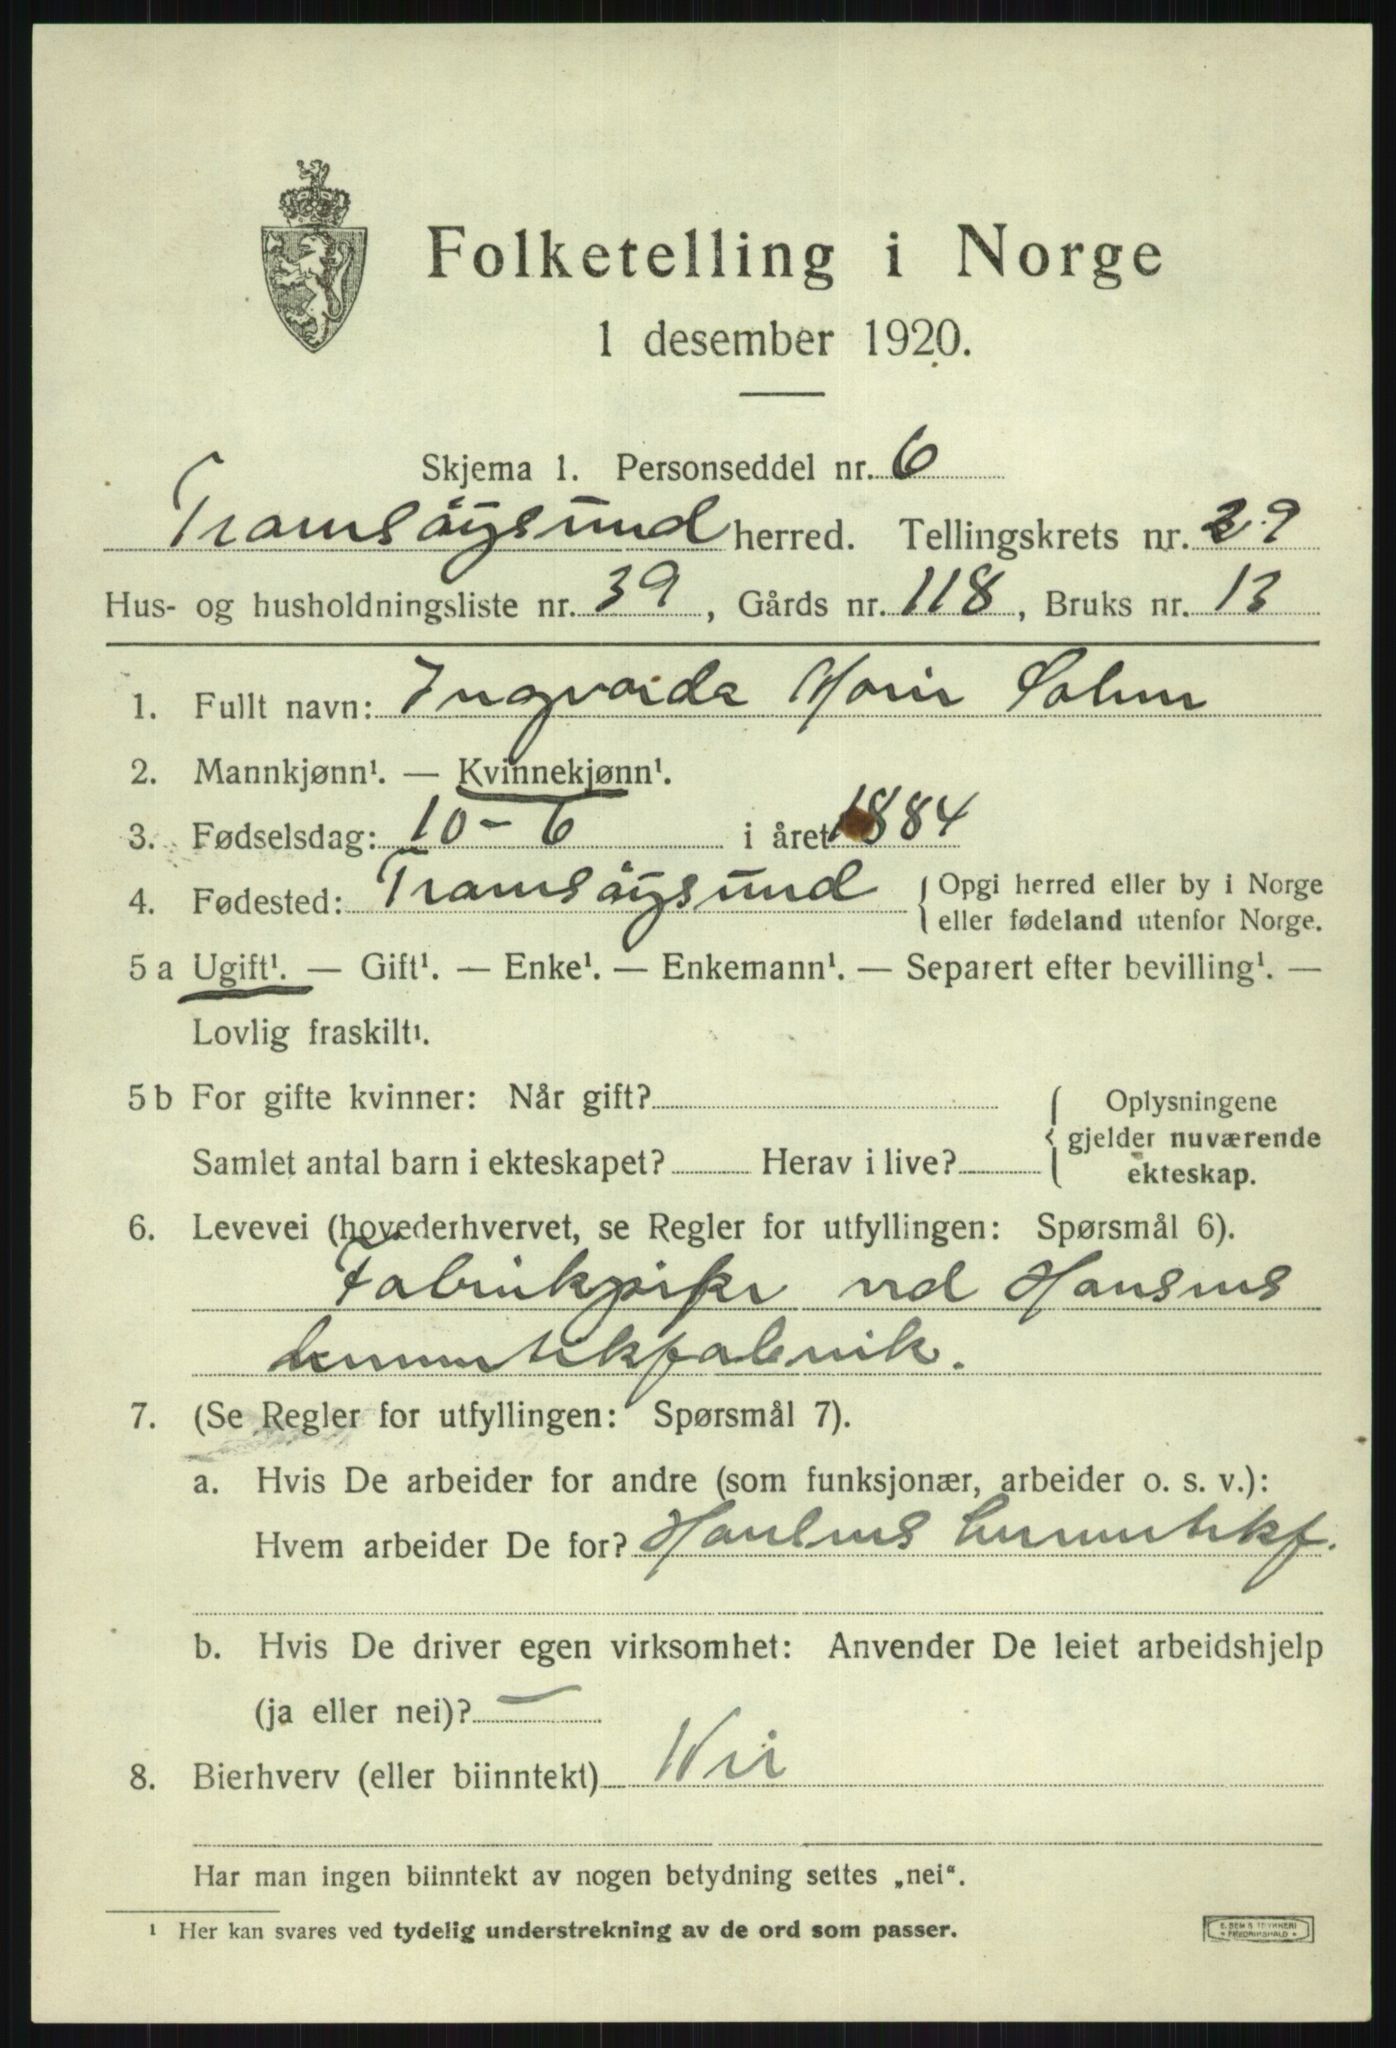 Folketelling i Norge
1 desember 1920.
Skjema 1. Personseddel nr. 6
Tromsøysund herred. Tellingskrets nr. 29
Hus- og husholdningsliste nr. 39, Gårds nr. 118, Bruks nr. 13
1. Fullt navn: Ingvarda Marie
2. Mannkjønn¹. — Kvinnekjønn¹.
3. Fødselsdag: 10-6 i året 1884
4. Fødested: Tromsøysund { Opgi herred eller by i Norge
eller fødeland utenfor Norge.
5 a Ugift¹. — Gift¹. — Enke¹. — Enkemann¹. — Separert efter bevilling¹. —
Lovlig fraskilt¹.
5 b For gifte kvinner: Når gift? { Oplysningene
gjelder nuværende
Samlet antal barn i ekteskapet? Herav i live?
ekteskap.
6. Levevei (hovederhvervet, se Regler for utfyllingen: Spørsmål 6).
Fabrikpike ved Hansens
hermetikfabrik.
7. (Se Regler for utfyllingen: Spørsmål 7).
a. Hvis De arbeider for andre (som funksjonær, arbeider o. s. v.):
Hvem arbeider De for? Hansens hermetikf.
b. Hvis De driver egen virksomhet: Anvender De leiet arbeidshjelp
(ja eller nei)? —
8. Bierhverv (eller biinntekt) Nei
Har man ingen biinntekt av nogen betydning settes „nei“.
¹ Her kan svares ved tydelig understrekning av de ord som passer.
E. SEM'S TRYKKERI
* FREDRIKSHALD *